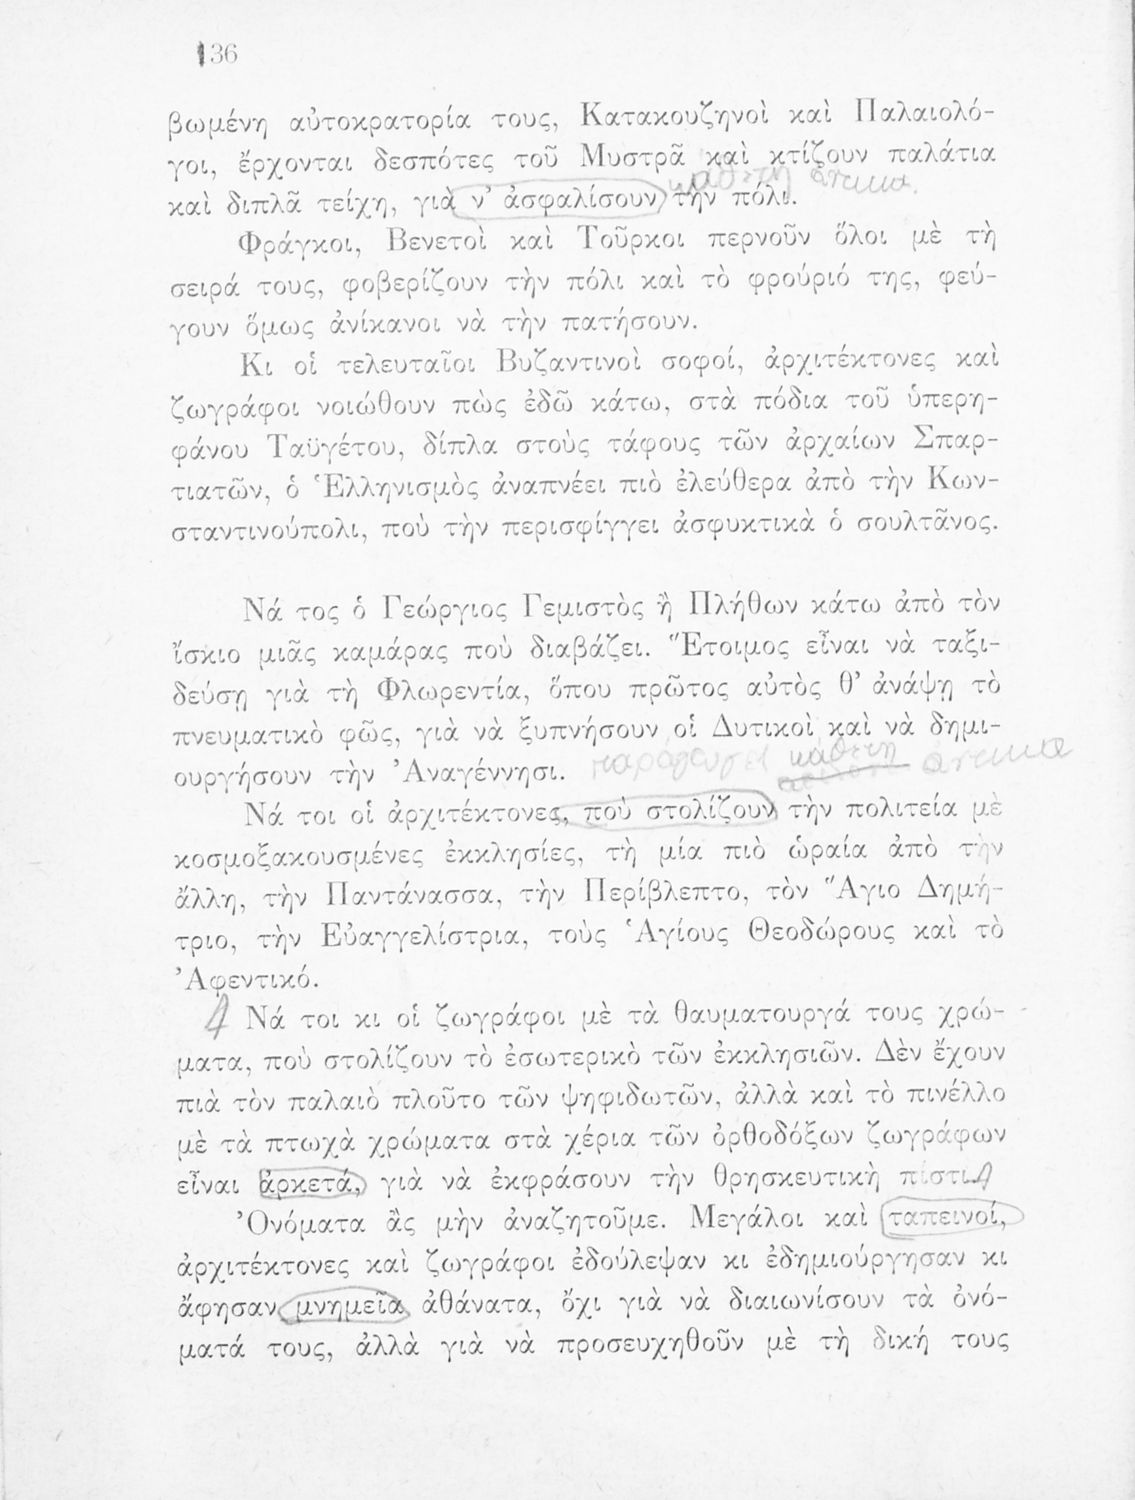 136
βωμένη αὐτοκρατορία τους, Κατακουζηνοὶ καὶ Παλαιολό-
γοι, ἔρχονται δεσπότες τοῦ Μυστρᾶ καὶ κτίζουν παλάτια
κάθετη
καὶ διπλᾶ τείχη, γιὰ ν’ ἀσφαλίσουν τὴν πόλι.
Φράγκοι, Βενετοὶ καὶ Τοῦρκοι περνοῦν ὅλοι μὲ τὴ
σειρά τους, φοβερίζουν τὴν πόλι καὶ τὸ φρούριό της, φεύ-
γουν ὅμως ἀνίκανοι νὰ τὴν πατήσουν.
Κι οἱ τελευταῖοι Βυζαντινοὶ σοφοί, ἀρχιτέκτονες καὶ
ζωγράφοι νοιώθουν πὼς ἐδῶ κάτω, στὰ πόδια τοῦ ὑπερη-
φάνου Ταϋγέτου, δίπλα στοὺς τάφους τῶν ἀρχαίων Σπαρ-
τιατῶν, ὁ Ἑλληνισμὸς ἀναπνέει πιὸ ἐλεύθερα ἀπὸ τὴν Κων-
σταντινούπολι, ποὺ τὴν περισφίγγει ἀσφυκτικὰ ὁ σουλτᾶνος.
Νά τος ὁ Γεώργιος Γεμιστὸς ἢ Πλήθων κάτω ἀπὸ τὸν
ἴσκιο μιᾶς καμάρας ποὺ διαβάζει. Ἕτοιμος εἶναι νὰ ταξι-
δεύσῃ γιὰ τὴ Φλωρεντία, ὅπου πρῶτος αὐτὸς θ’ ἀνάψῃ τὸ
πνευματικὸ φῶς, γιὰ νὰ ξυπνήσουν οἱ Δυτικοὶ καὶ νὰ δημι-
ουργήσουν τὴν Ἀναγέννησι.
κάθετη
Νά τοι οἱ ἀρχιτέκτονες, ποὺ στολίζουν τὴν πολιτεία μὲ
κοσμοξακουσμένες ἐκκλησίες, τὴ μία πιὸ ὡραία ἀπὸ τὴν
ἄλλη, τὴν Παντάνασσα, τὴν Περίβλεπτο, τὸν Ἅγιο Δημή-
τριο, τὴν Εὐαγγελίστρια, τοὺς Ἁγίους Θεοδώρους καὶ τὸ
Ἀφεντικό.
Νά τοι κι οἱ ζωγράφοι μὲ τὰ θαυματουργά τους χρώ-
ματα, ποὺ στολίζουν τὸ ἐσωτερικὸ τῶν ἐκκλησιῶν. Δὲν ἔχουν
πιὰ τὸν παλαιὸ πλοῦτο τῶν ψηφιδωτῶν, ἀλλὰ καὶ τὸ πινέλλο
μὲ τὰ πτωχὰ χρώματα στὰ χέρια τῶν ὀρθοδόξων ζωγράφων
εἶναι ἀρκετά, γιὰ νὰ ἐκφράσουν τὴν θρησκευτικὴ πίστι.
Ὀνόματα ἂς μὴν ἀναζητοῦμε. Μεγάλοι καὶ ταπεινοί,
ἀρχιτέκτονες καὶ ζωγράφοι ἐδούλεψαν κι ἐδημιούργησαν κι
ἄφησαν μνημεῖα ἀθάνατα, ὄχι γιὰ νὰ διαιωνίσουν τὰ ὀνό-
ματά τους, ἀλλὰ γιὰ νὰ προσευχηθοῦν μὲ τὴ δική τους